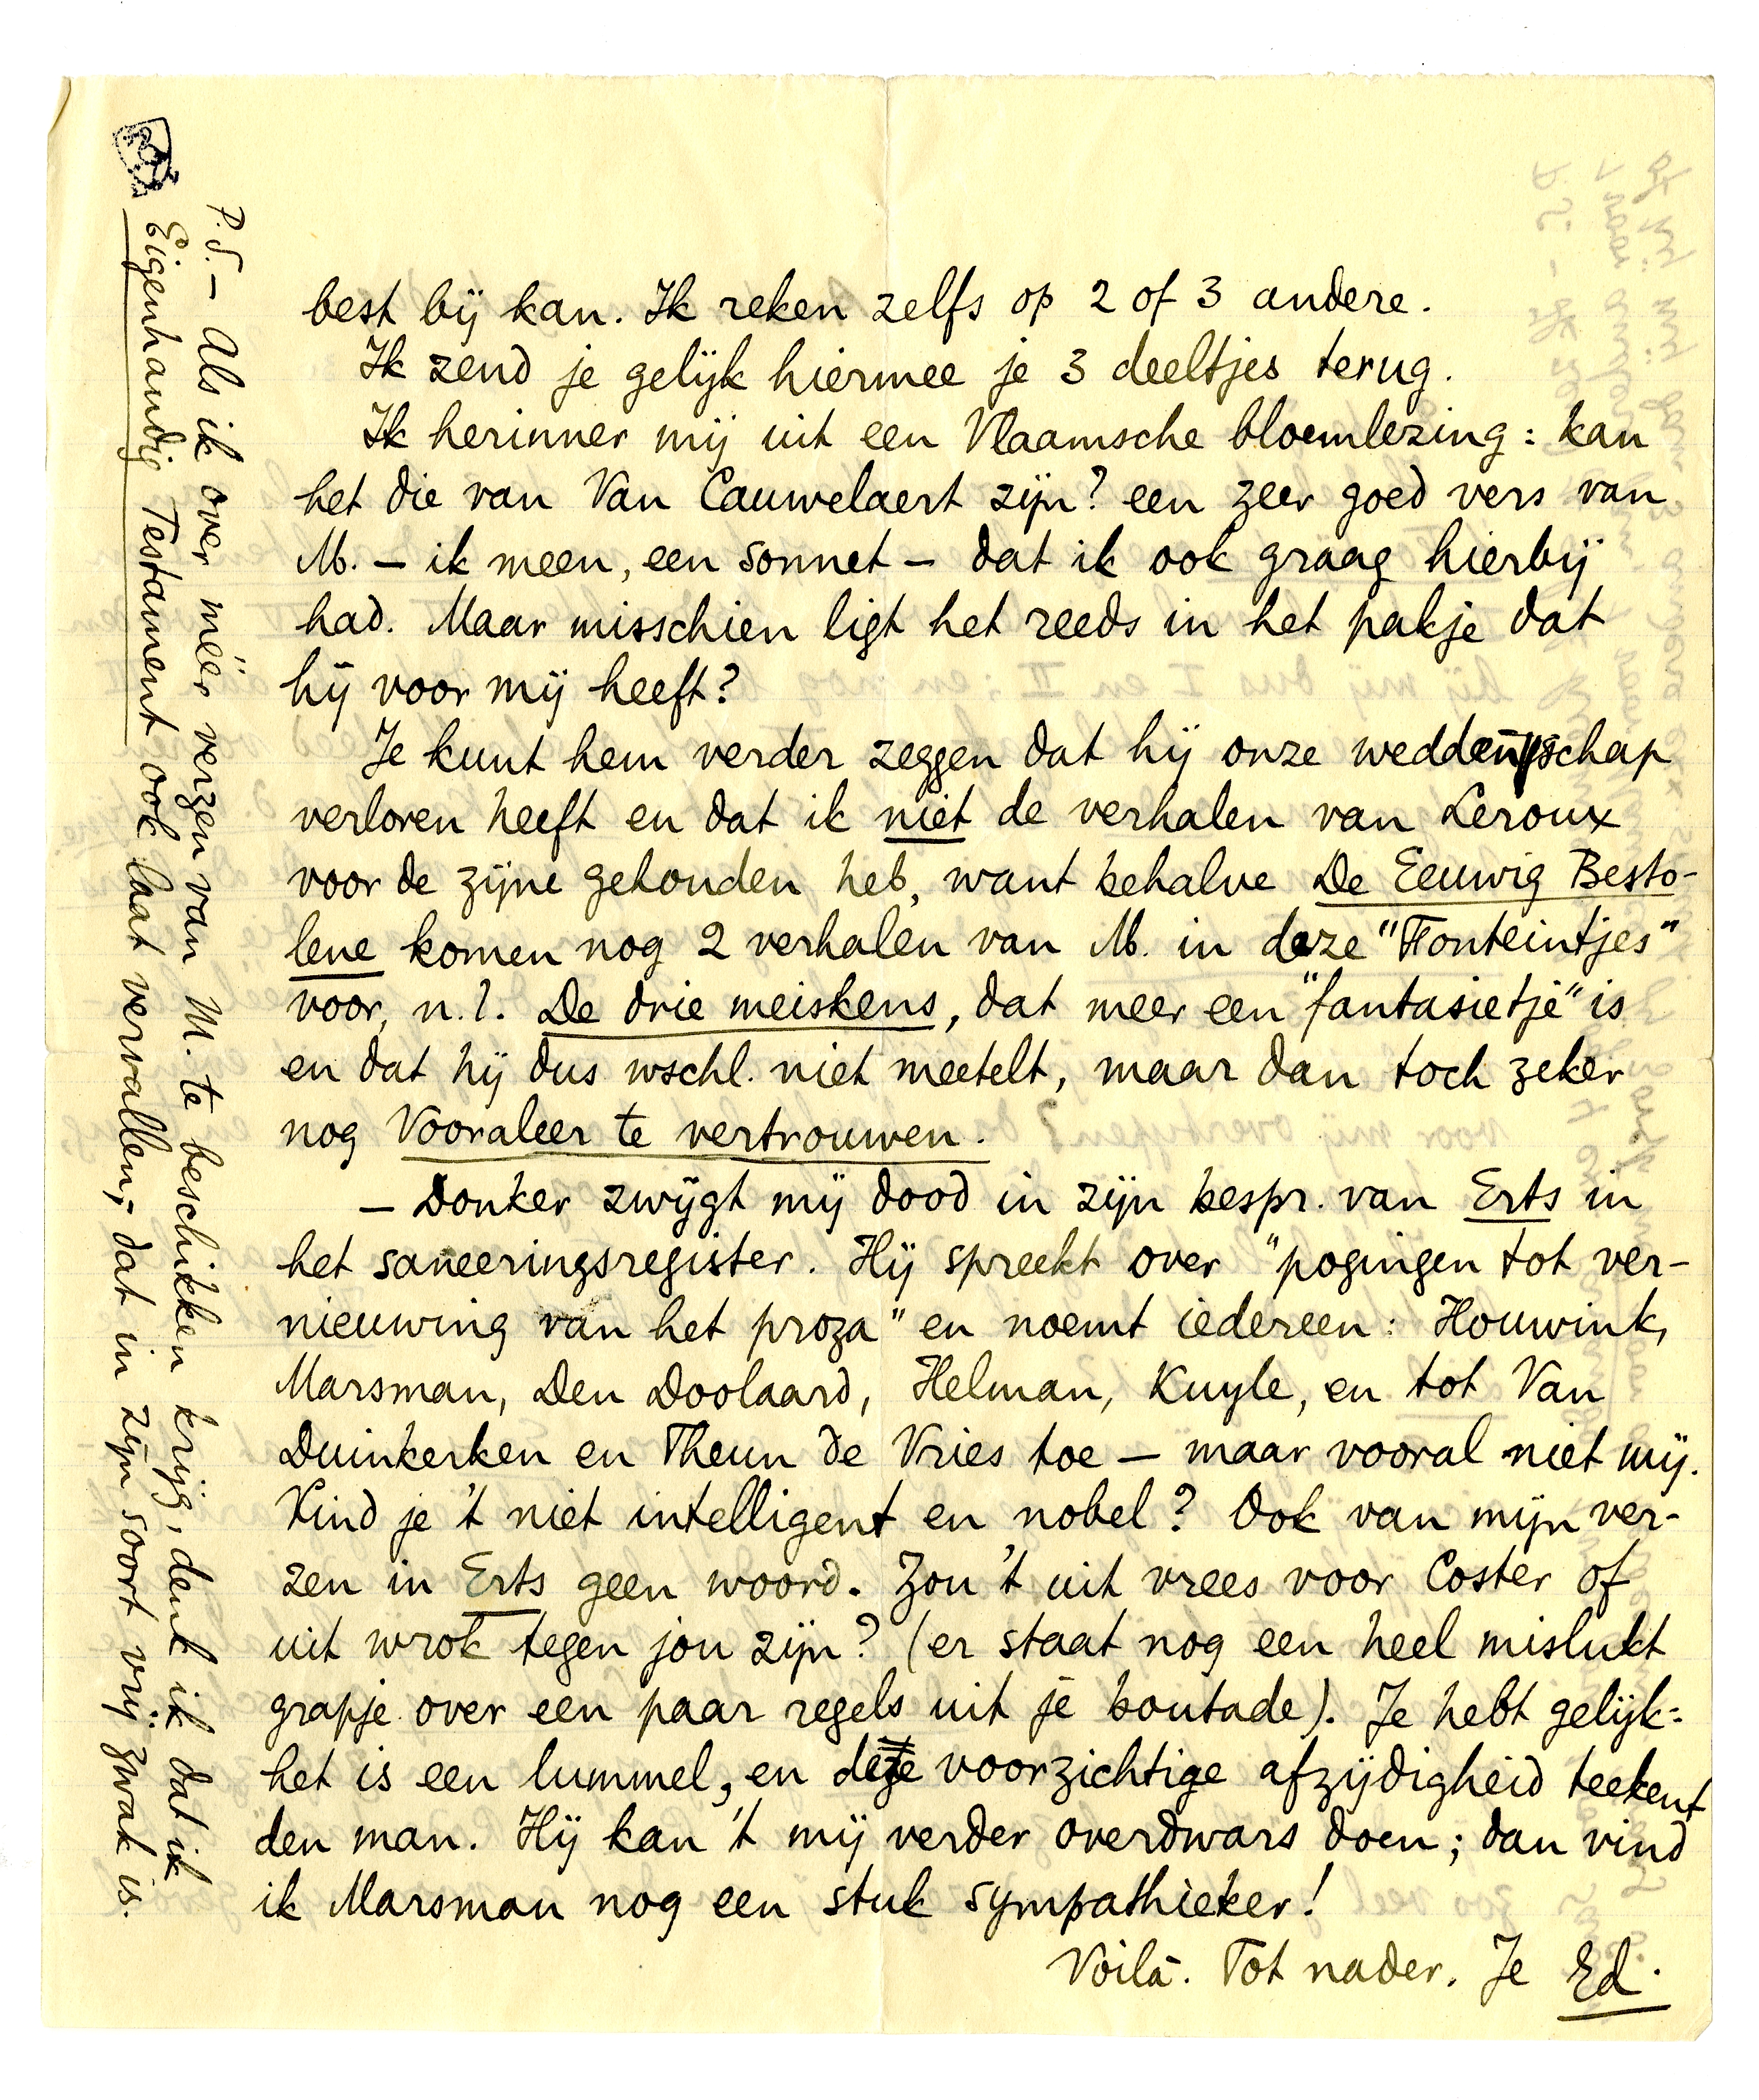 best bij kan. Ik reken zelfs op 2 of 3 andere.
Ik zend je gelijk hiermee je 3 deeltjes terug.
Ik herinner mij uit een Vlaamsche bloemlezing: kan
het die van Van Cauwelaert zijn? een zeer goed vers van
M. – ik meen, een sonnet – dat ik ook graag hierbij
had. Maar misschien ligt het reeds in het pakje dat
hij voor mij heeft?
Je kunt hem verder zeggen dat hij onze weddenschap
verloren heeft en dat ik niet de verhalen van Leroux
voor de zijne gehouden heb, want behalve De Eeuwig Besto-
lene komen nog 2 verhalen van M. in deze "Fonteintjes"
voor, n.l. De drie meiskens, dat meer een "fantasietje" is
en dat hij dus wschl. niet meetelt, maar dan toch zeker
nog Vooraleer te vertrouwen.
– Donker zwijgt mij dood in zijn bespr. van Erts in
het saneeringsregister. Hij spreekt over "pogingen tot ver-
nieuwing van het proza" en noemt iedereen: Houwink,
Marsman, Den Doolaard, Helman, Kuyle, en tot Van
Duinkerken en Theun de Vries toe – maar vooral niet mij.
Vind je 't niet intelligent en nobel? Ook van mijn ver-
zen in Erts geen woord. Zou 't uit vrees voor Coster of
uit wrok tegen jou zijn? (er staat nog een heel mislukt
grapje over een paar regels uit je boutade). Je hebt gelijk:
het is een lummel, en deze voorzichtige afzijdigheid teekent
den man. Hij kan 't mij verder overdwars doen; dan vind
ik Marsman nog een stuk sympathieker!
Voilà. Tot nader. Je Ed.
P.S. – Als ik over méér verzen van M. te beschikken krijg, denk ik dat ik
Eigenhandig Testament ook laat vervallen, dat in zijn soort vrij zwak is.